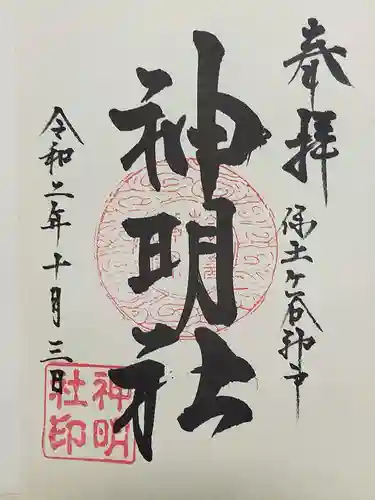 奉拝
保土ヶ谷神戸
神明社
令和二年十月三日
神明
社印